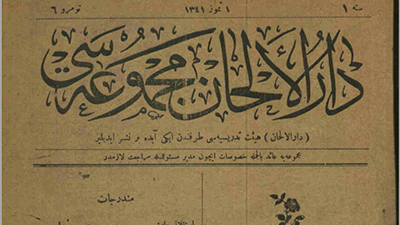 سنه ١
١ تموز ١٣٤١
نومرو ٦
دار الألحان مجموعه سی
( دارالالحان ) هیئت تدریسیه سی طرفندن ایکی آیده بر نشر ایدیلیر
مجموعه یه عائد بالجمله خصوصات ایچون مدیر مسئولنه مراجعت لازمدر
مندرجات